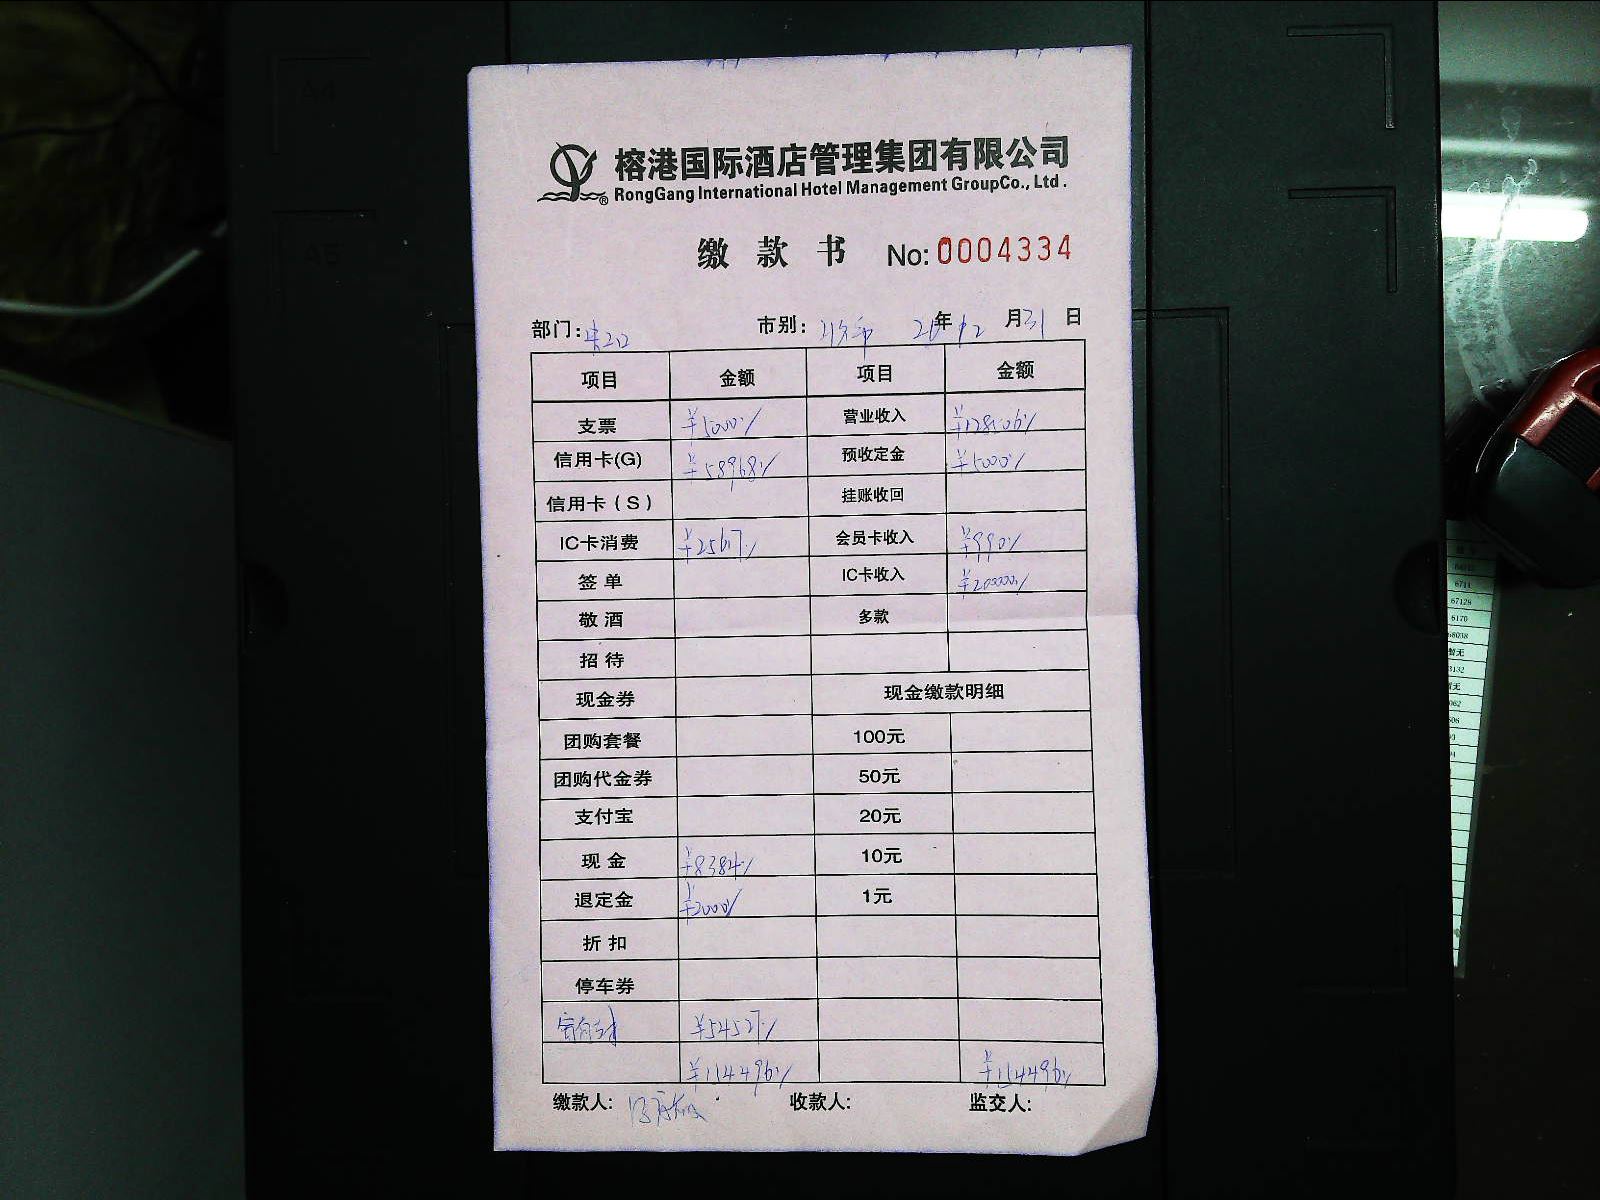 榕港国际酒店管理集团有限公司
RongGang International Hotel Management GroupCo., Ltd.
缴款书 No: 0004334
部门: 市别: 年12月31日
项目 金额 项目 金额
支票 ¥5000 营业收入 ¥128506
信用卡(G) ¥58968 预收定金 ¥5000
信用卡(S) 挂账收回
IC卡消费 ¥25617 会员卡收入 ¥990
签单 IC卡收入 ¥20000
敬酒 多款
招待
现金券 现金缴款明细
团购套餐 100元
团购代金券 50元
支付宝 20元
现金 ¥8384 10元
退定金 ¥2000 1元
折扣
停车券
¥54527
¥154496 ¥154496
缴款人: 收款人: 监交人:
A4
A5
6711
67128
6170
68038
暂无